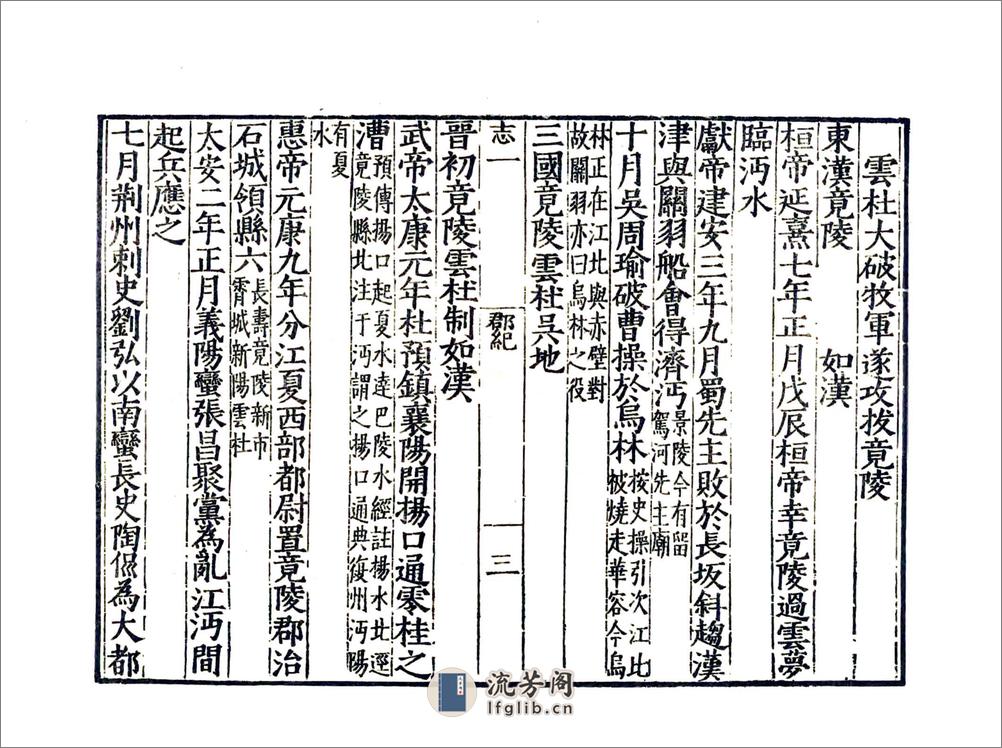 雲杜大破牧軍遂攻拔竟陵
東漢竟陵　　如漢
桓帝延熹七年正月戊辰桓帝幸竟陵過雲夢
臨沔水
獻帝建安三年九月蜀先主敗於長坂斜趨漢
津與關羽船會得濟沔景陵今有留駕河先主廟
十月吳周瑜破曹操於烏林按史操引次江北被燒走華容今烏
林正在江北與赤壁對故關羽亦曰烏林之役
三國竟陵雲杜吳地
志一
郡紀
三
晉初竟陵雲杜制如漢
武帝太康元年杜預鎮襄陽開揚口通零桂之
漕預傳揚口起夏水達巴陵水經註揚水北逕竟陵縣北注于沔謂之揚口通典復州沔陽
有夏水
惠帝元康九年分江夏西部都尉置竟陵郡治
石城領縣六長壽竟陵新市霄城新陽雲杜
太安二年正月義陽蠻張昌聚黨為亂江沔間
起兵應之
七月荆州刺史劉弘以南蠻長史陶侃為大都
流芳阁
lfglib.cn